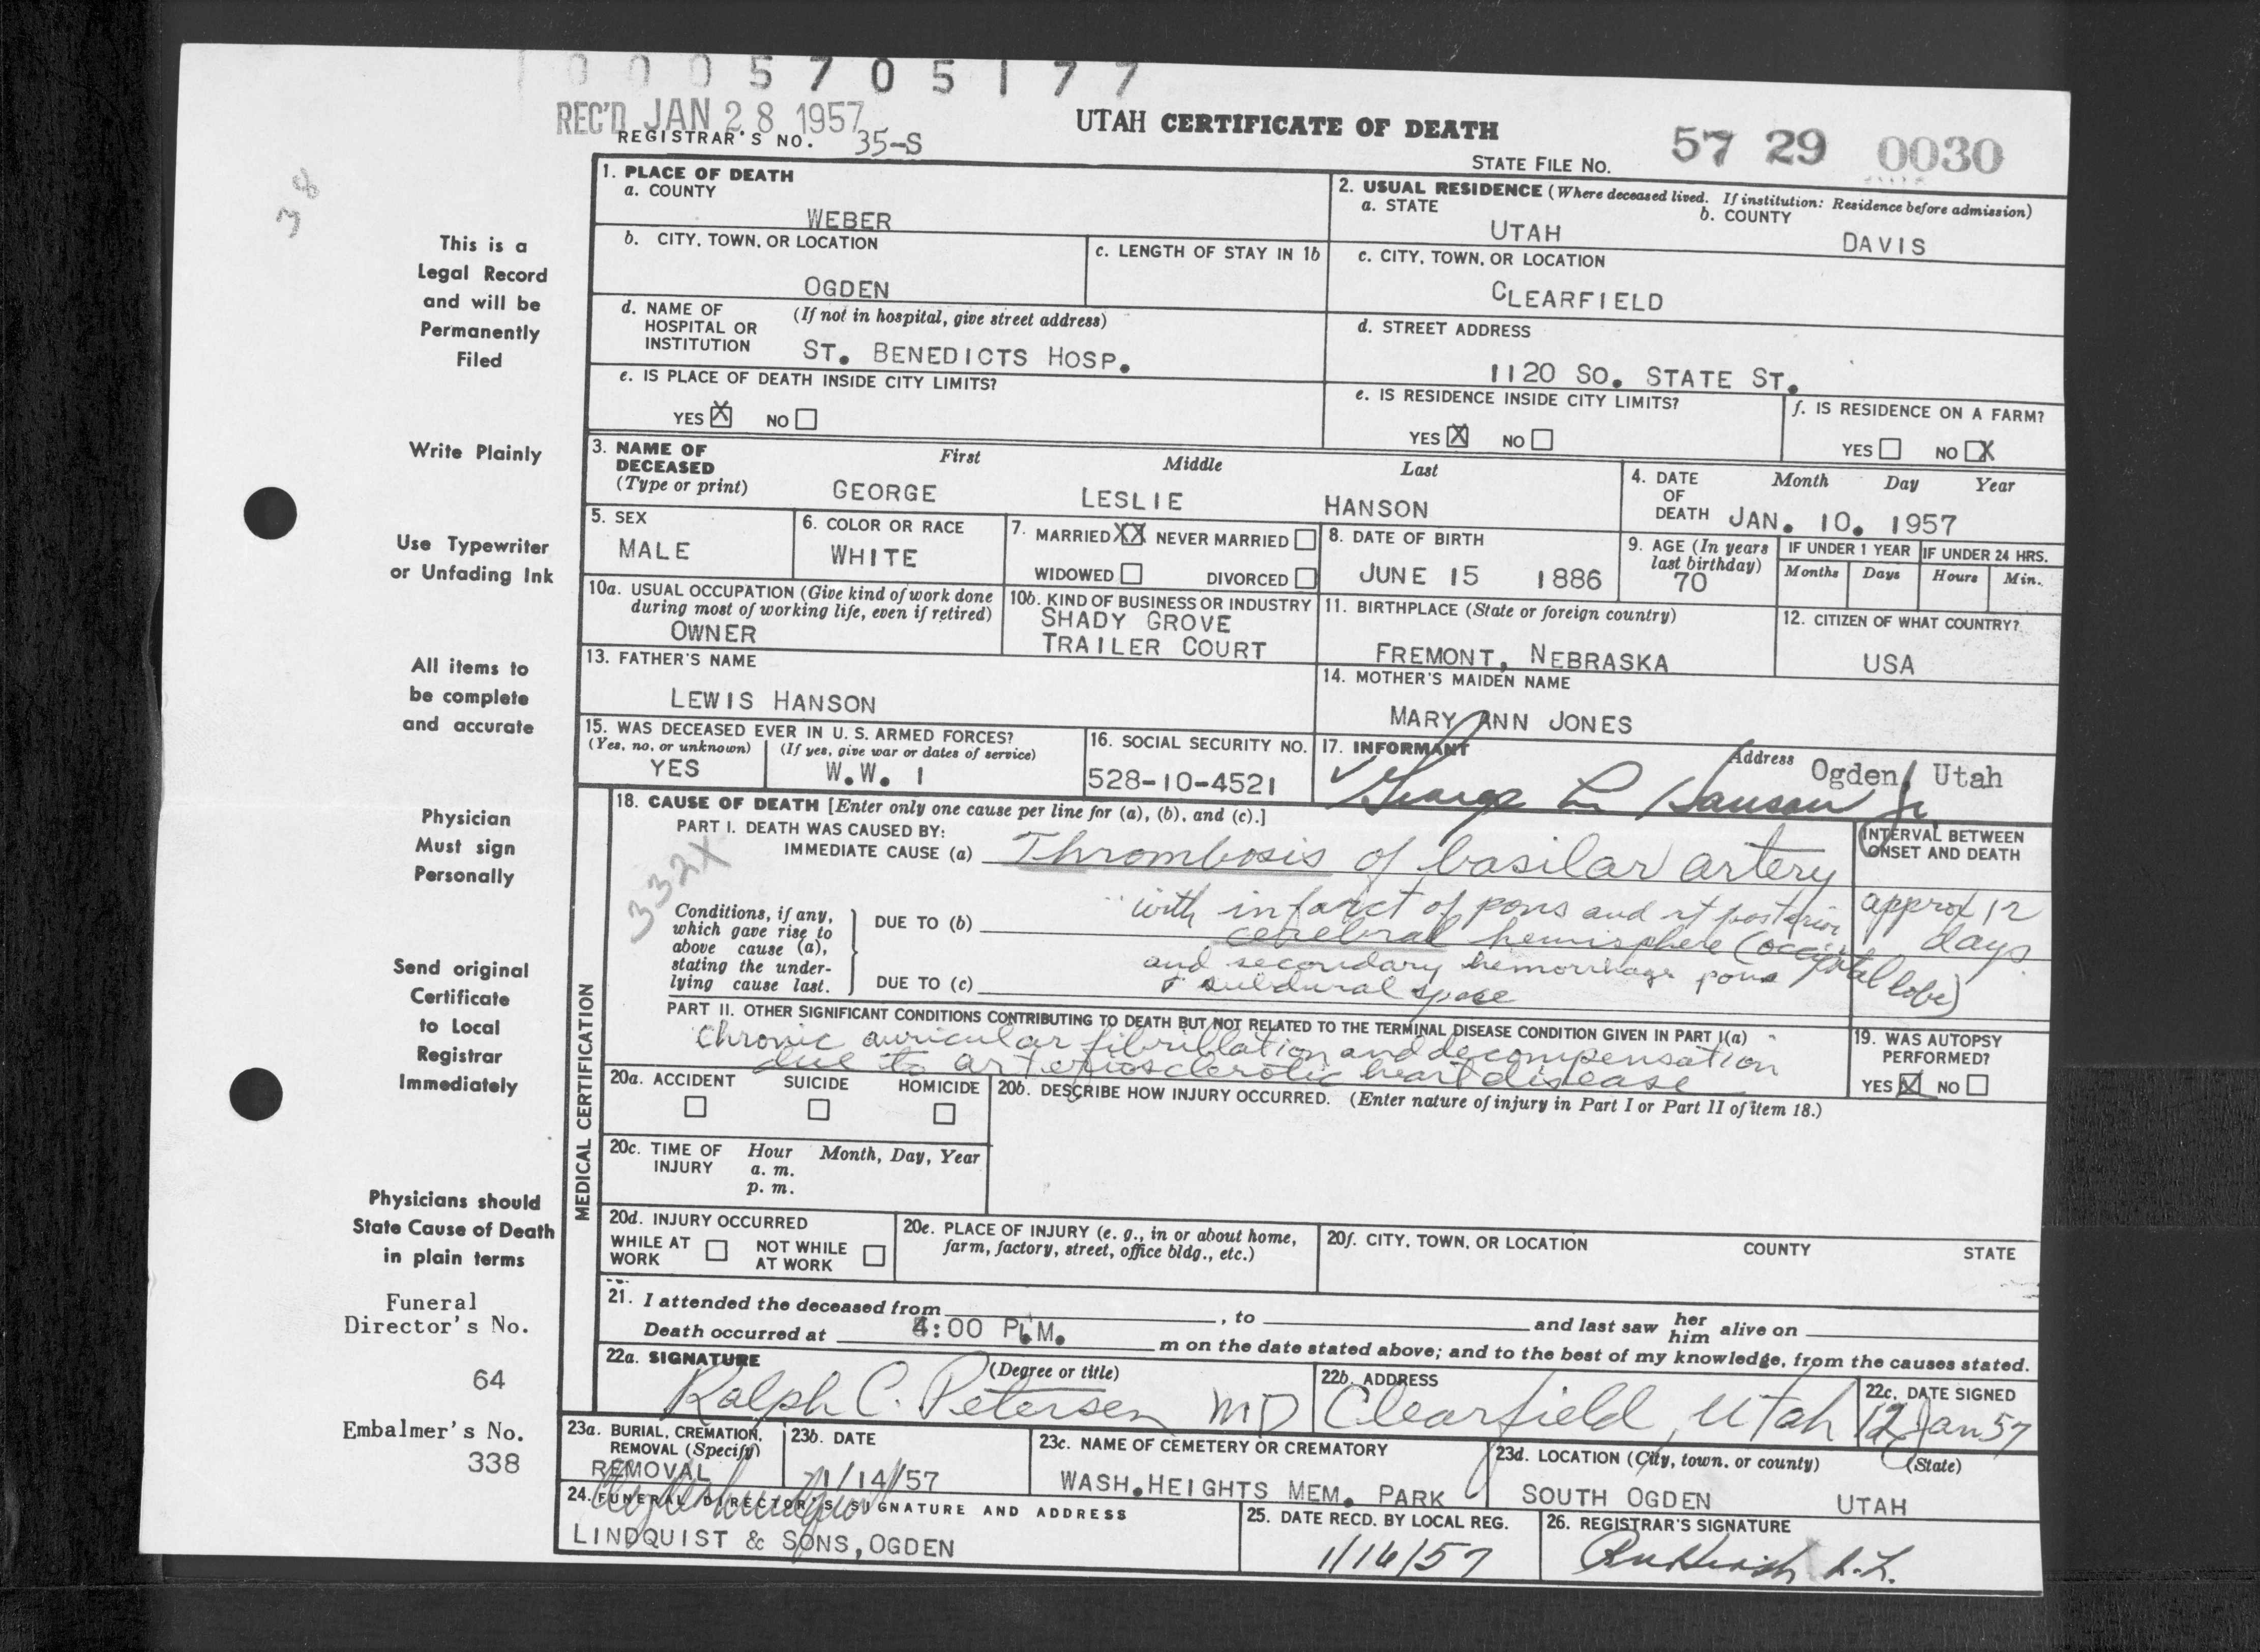 0005705177
REC'D JAN 28 1957
REGISTRAR'S NO. 35-S
UTAH CERTIFICATE OF DEATH
STATE FILE NO. 57 29 0030
38
This is a
Legal Record
and will be
Permanently
Filed
Write Plainly
Use Typewriter
or Unfading Ink
All items to
be complete
and accurate
Physician
Must sign
Personally
Send original
Certificate
to Local
Registrar
Immediately
Physicians should
State Cause of Death
in plain terms
Funeral
Director's No.
64
Embalmer's No.
338
1. PLACE OF DEATH
a. COUNTY
WEBER
b. CITY, TOWN, OR LOCATION
OGDEN
c. LENGTH OF STAY IN 1b
d. NAME OF HOSPITAL OR INSTITUTION (If not in hospital, give street address)
ST. BENEDICTS HOSP.
e. IS PLACE OF DEATH INSIDE CITY LIMITS?
YES X NO
2. USUAL RESIDENCE (Where deceased lived. If institution: Residence before admission)
a. STATE
UTAH
b. COUNTY
DAVIS
c. CITY, TOWN, OR LOCATION
CLEARFIELD
d. STREET ADDRESS
1120 SO. STATE ST.
e. IS RESIDENCE INSIDE CITY LIMITS?
YES X NO
f. IS RESIDENCE ON A FARM?
YES NO X
3. NAME OF DECEASED (Type or print)
First Middle Last
GEORGE LESLIE HANSON
4. DATE OF DEATH
Month Day Year
JAN. 10. 1957
5. SEX
MALE
6. COLOR OR RACE
WHITE
7. MARRIED XX NEVER MARRIED
WIDOWED DIVORCED
8. DATE OF BIRTH
JUNE 15 1886
9. AGE (In years last birthday)
70
IF UNDER 1 YEAR
Months Days
IF UNDER 24 HRS.
Hours Min.
10a. USUAL OCCUPATION (Give kind of work done during most of working life, even if retired)
OWNER
10b. KIND OF BUSINESS OR INDUSTRY
SHADY GROVE
TRAILER COURT
11. BIRTHPLACE (State or foreign country)
FREMONT, NEBRASKA
12. CITIZEN OF WHAT COUNTRY?
USA
13. FATHER'S NAME
LEWIS HANSON
14. MOTHER'S MAIDEN NAME
MARY ANN JONES
15. WAS DECEASED EVER IN U. S. ARMED FORCES?
(Yes, no, or unknown) (If yes, give war or dates of service)
YES W.W. 1
16. SOCIAL SECURITY NO.
528-10-4521
17. INFORMANT Address
George L. Hanson Jr. Ogden, Utah
MEDICAL CERTIFICATION
18. CAUSE OF DEATH [Enter only one cause per line for (a), (b), and (c).]
PART I. DEATH WAS CAUSED BY:
IMMEDIATE CAUSE (a) Thrombosis of basilar artery
332X
Conditions, if any, which gave rise to above cause (a), stating the underlying cause last.
DUE TO (b) with infarct of pons and rt posterior
cerebral hemisphere (occipital lobe)
DUE TO (c) and secondary hemorrhage pons
& subdural space
INTERVAL BETWEEN ONSET AND DEATH
approx 12
days
PART II. OTHER SIGNIFICANT CONDITIONS CONTRIBUTING TO DEATH BUT NOT RELATED TO THE TERMINAL DISEASE CONDITION GIVEN IN PART I(a)
chronic auricular fibrillation and decompensation
due to arteriosclerotic heart disease
19. WAS AUTOPSY PERFORMED?
YES X NO
20a. ACCIDENT SUICIDE HOMICIDE
20b. DESCRIBE HOW INJURY OCCURRED. (Enter nature of injury in Part I or Part II of item 18.)
20c. TIME OF INJURY Hour Month, Day, Year
a. m.
p. m.
20d. INJURY OCCURRED
WHILE AT WORK NOT WHILE AT WORK
20e. PLACE OF INJURY (e. g., in or about home, farm, factory, street, office bldg., etc.)
20f. CITY, TOWN, OR LOCATION COUNTY STATE
21. I attended the deceased from , to and last saw her him alive on
Death occurred at 4:00 P.M. m on the date stated above; and to the best of my knowledge, from the causes stated.
22a. SIGNATURE (Degree or title)
Ralph C. Petersen MD
22b. ADDRESS
Clearfield, Utah
22c. DATE SIGNED
12 Jan 57
23a. BURIAL, CREMATION, REMOVAL (Specify)
REMOVAL
23b. DATE
1/14/57
23c. NAME OF CEMETERY OR CREMATORY
WASH.HEIGHTS MEM. PARK
23d. LOCATION (City, town, or county) (State)
SOUTH OGDEN UTAH
24. FUNERAL DIRECTOR'S SIGNATURE AND ADDRESS
LINDQUIST & SONS, OGDEN
25. DATE RECD. BY LOCAL REG.
1/16/57
26. REGISTRAR'S SIGNATURE